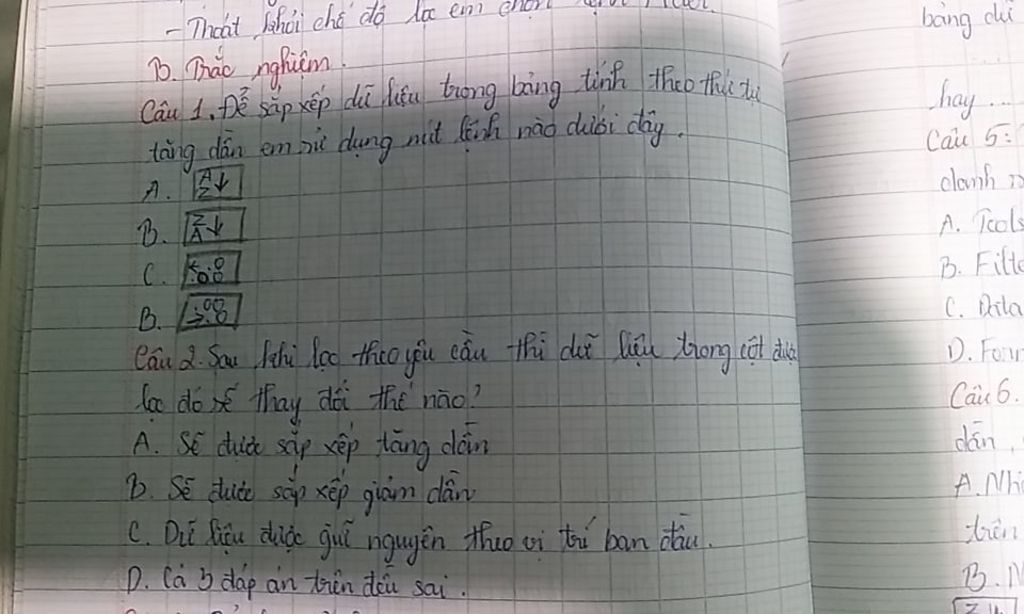 - Thoát khỏi chế độ lọc em chọn
B. Trắc nghiệm.
Câu 1. Để sắp xếp dữ liệu trong bảng tính theo thứ tự
tăng dần em sử dụng nút lệnh nào dưới đây.
A. A Z ↓
B. Z A ↓
C.
B.
Câu 2. Sau khi lọc theo yêu cầu thì dữ liệu trong cột được
lọc đó sẽ thay đổi thế nào?
A. Sẽ được sắp xếp tăng dần
B. Sẽ được sắp xếp giảm dần
C. Dữ liệu được giữ nguyên theo vị trí ban đầu.
D. Cả 3 đáp án trên đều sai.
bảng dữ
hay ...
Câu 5:
danh
A. Tools
B. Filte
C. Data
D. Form
Câu 6.
dần,
A. Nhá
trên
B. N